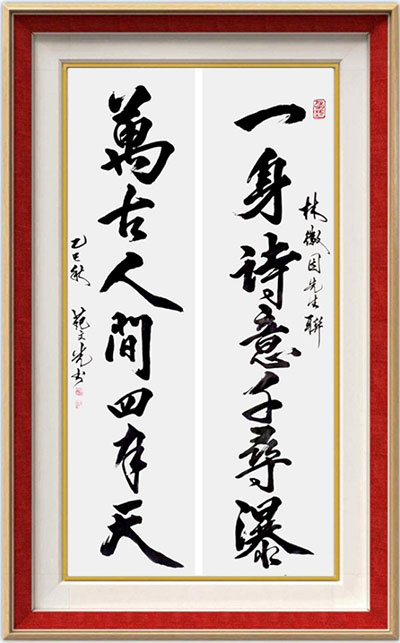 一身詩意千尋瀑
林徽因先生聯
萬古人間四月天
乙巳秋 范文光书